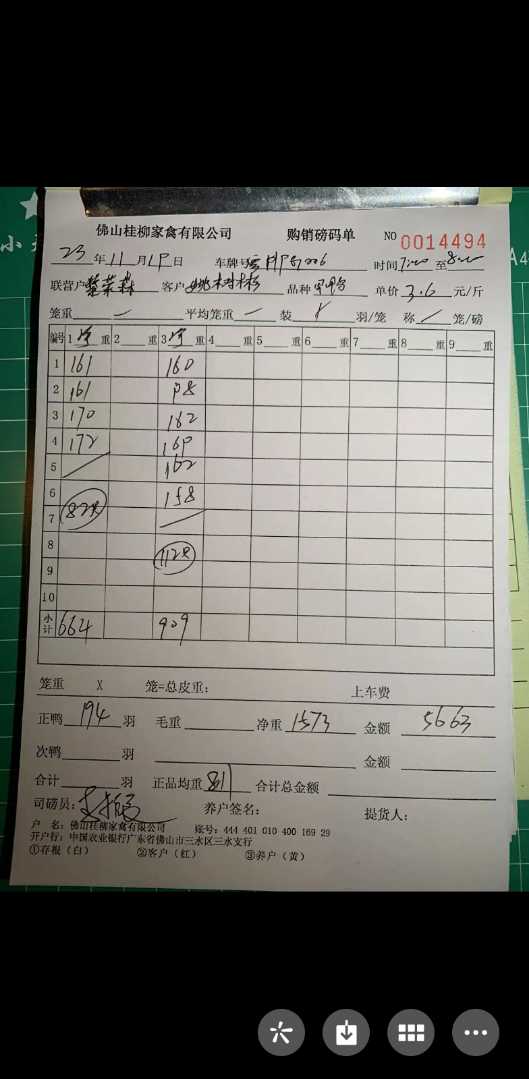 佛山桂柳家禽有限公司 购销磅码单 NO 0014494
23 年 11 月 19 日 车牌号 时间 7:00 至 8:00
联营户 客户 品种 单价 3.6 元/斤
笼重 平均笼重 装 8 羽/笼 称 笼/磅
编号 1 重 2 重 3 重 4 重 5 重 6 重 7 重 8 重 9 重
1 161 160
2 161 98
3 170 162
4 172 169
5 162
6 158
7 82只
8 112只
9
10
小计 664 909
笼重 X 笼=总皮重: 上车费
正鸭 194 羽 毛重 净重 1573 金额 5663
次鸭 羽 金额
合计 羽 正品均重 811 合计总金额
司磅员: 养户签名: 提货人:
户 名: 佛山桂柳家禽有限公司 账号: 444 401 010 400 169 29
开户行: 中国农业银行广东省佛山市三水区三水支行
①存根(白) ②客户(红) ③养户(黄)
A4